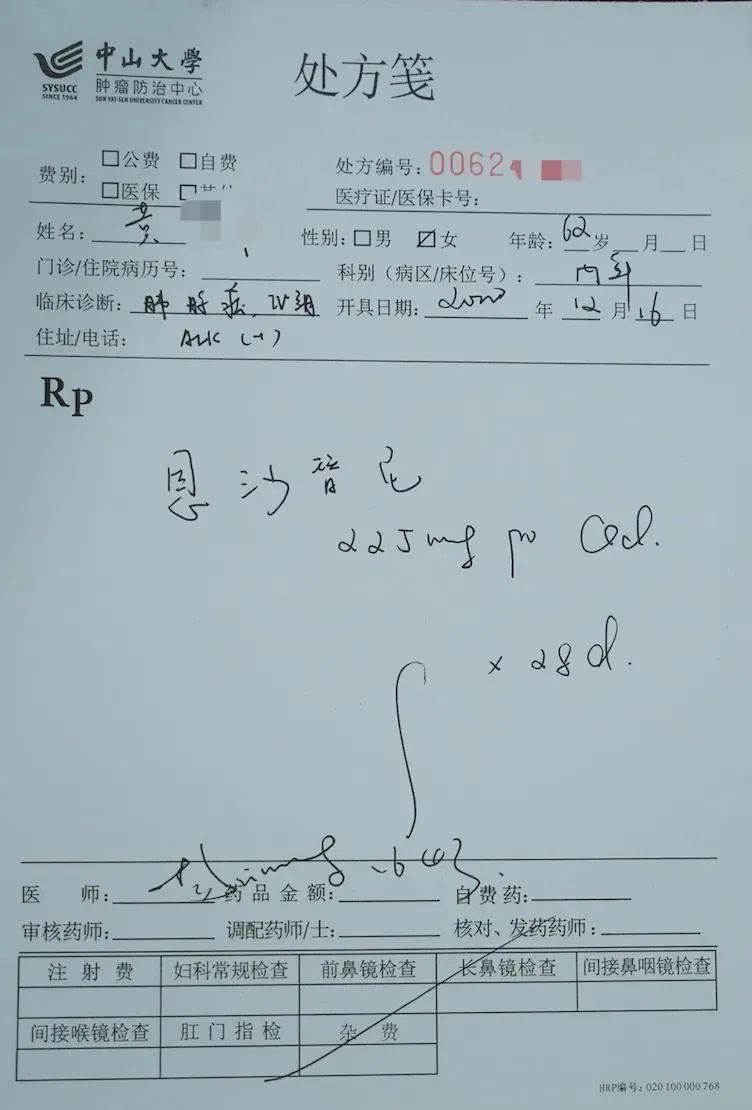 中山大學
肿瘤防治中心
SUN YAT-SEN UNIVERSITY CANCER CENTER
SYSUCC
SINCE 1964
处方笺
费别: 公费 自费
医保
处方编号: 0062
医疗证/医保卡号:
姓名: 黄 性别: 男 女 年龄: 62 岁 月 日
门诊/住院病历号: 科别（病区/床位号）: 内科
临床诊断: 肺腺癌, IV期 开具日期: 2020 年 12 月 16 日
住址/电话: ALK (+)
Rp
恩沙替尼
225mg po Qd.
× 28d.
医 师: 药品金额: 自费药:
审核药师: 调配药师/士: 核对、发药药师:
注射费 妇科常规检查 前鼻镜检查 长鼻镜检查 间接鼻咽镜检查
间接喉镜检查 肛门指检 杂费
HRP编号: 020 100 000 768